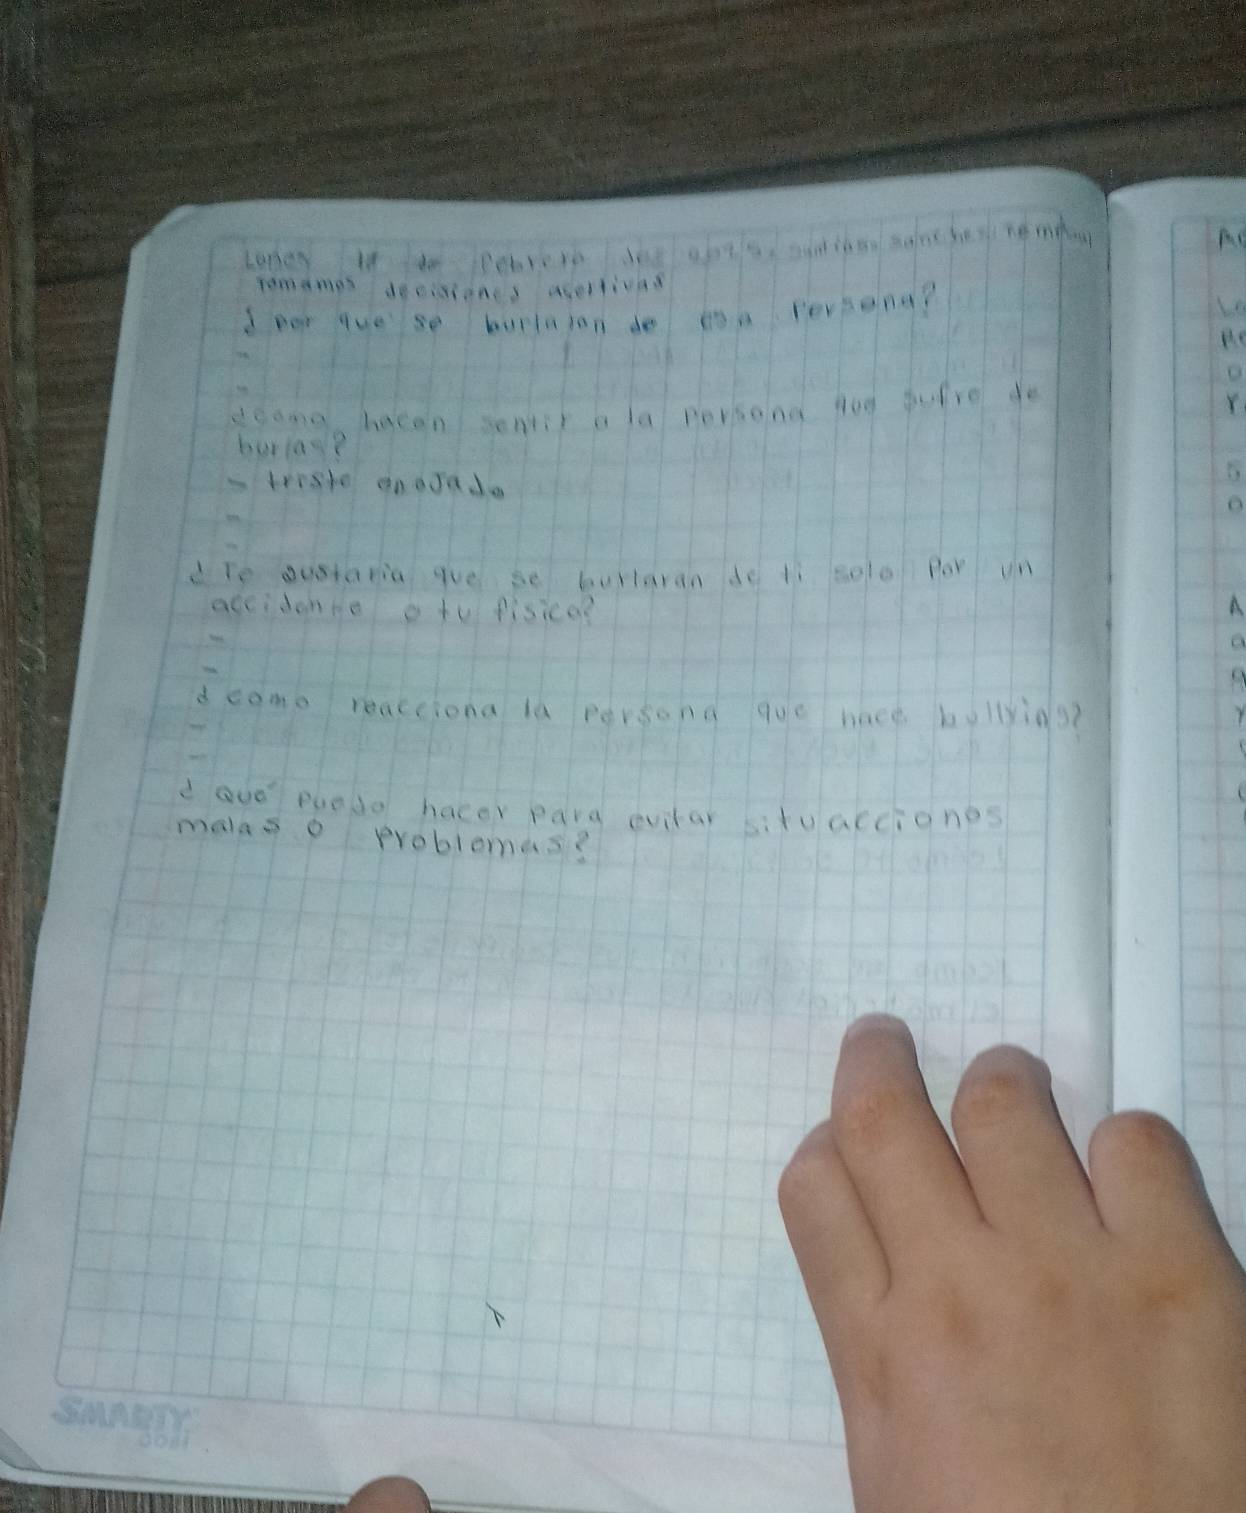 Lunes 17 de Febrero del
Tomamos decisiones asertivas
¿ por que se burlaron de esa Persona?
-
-
¿como hacen sentir a la Persona que sufre de
burlas?
- triste enojado
-
-
¿ Te gustaria que se burlaran de ti solo Por un
accidente o tu fisico?
-
-
¿ como reacciona la Persona que hace bullying?
-
-
¿ Que Puedo hacer Para evitar situacciones
malas o Problemas?
SMARTY